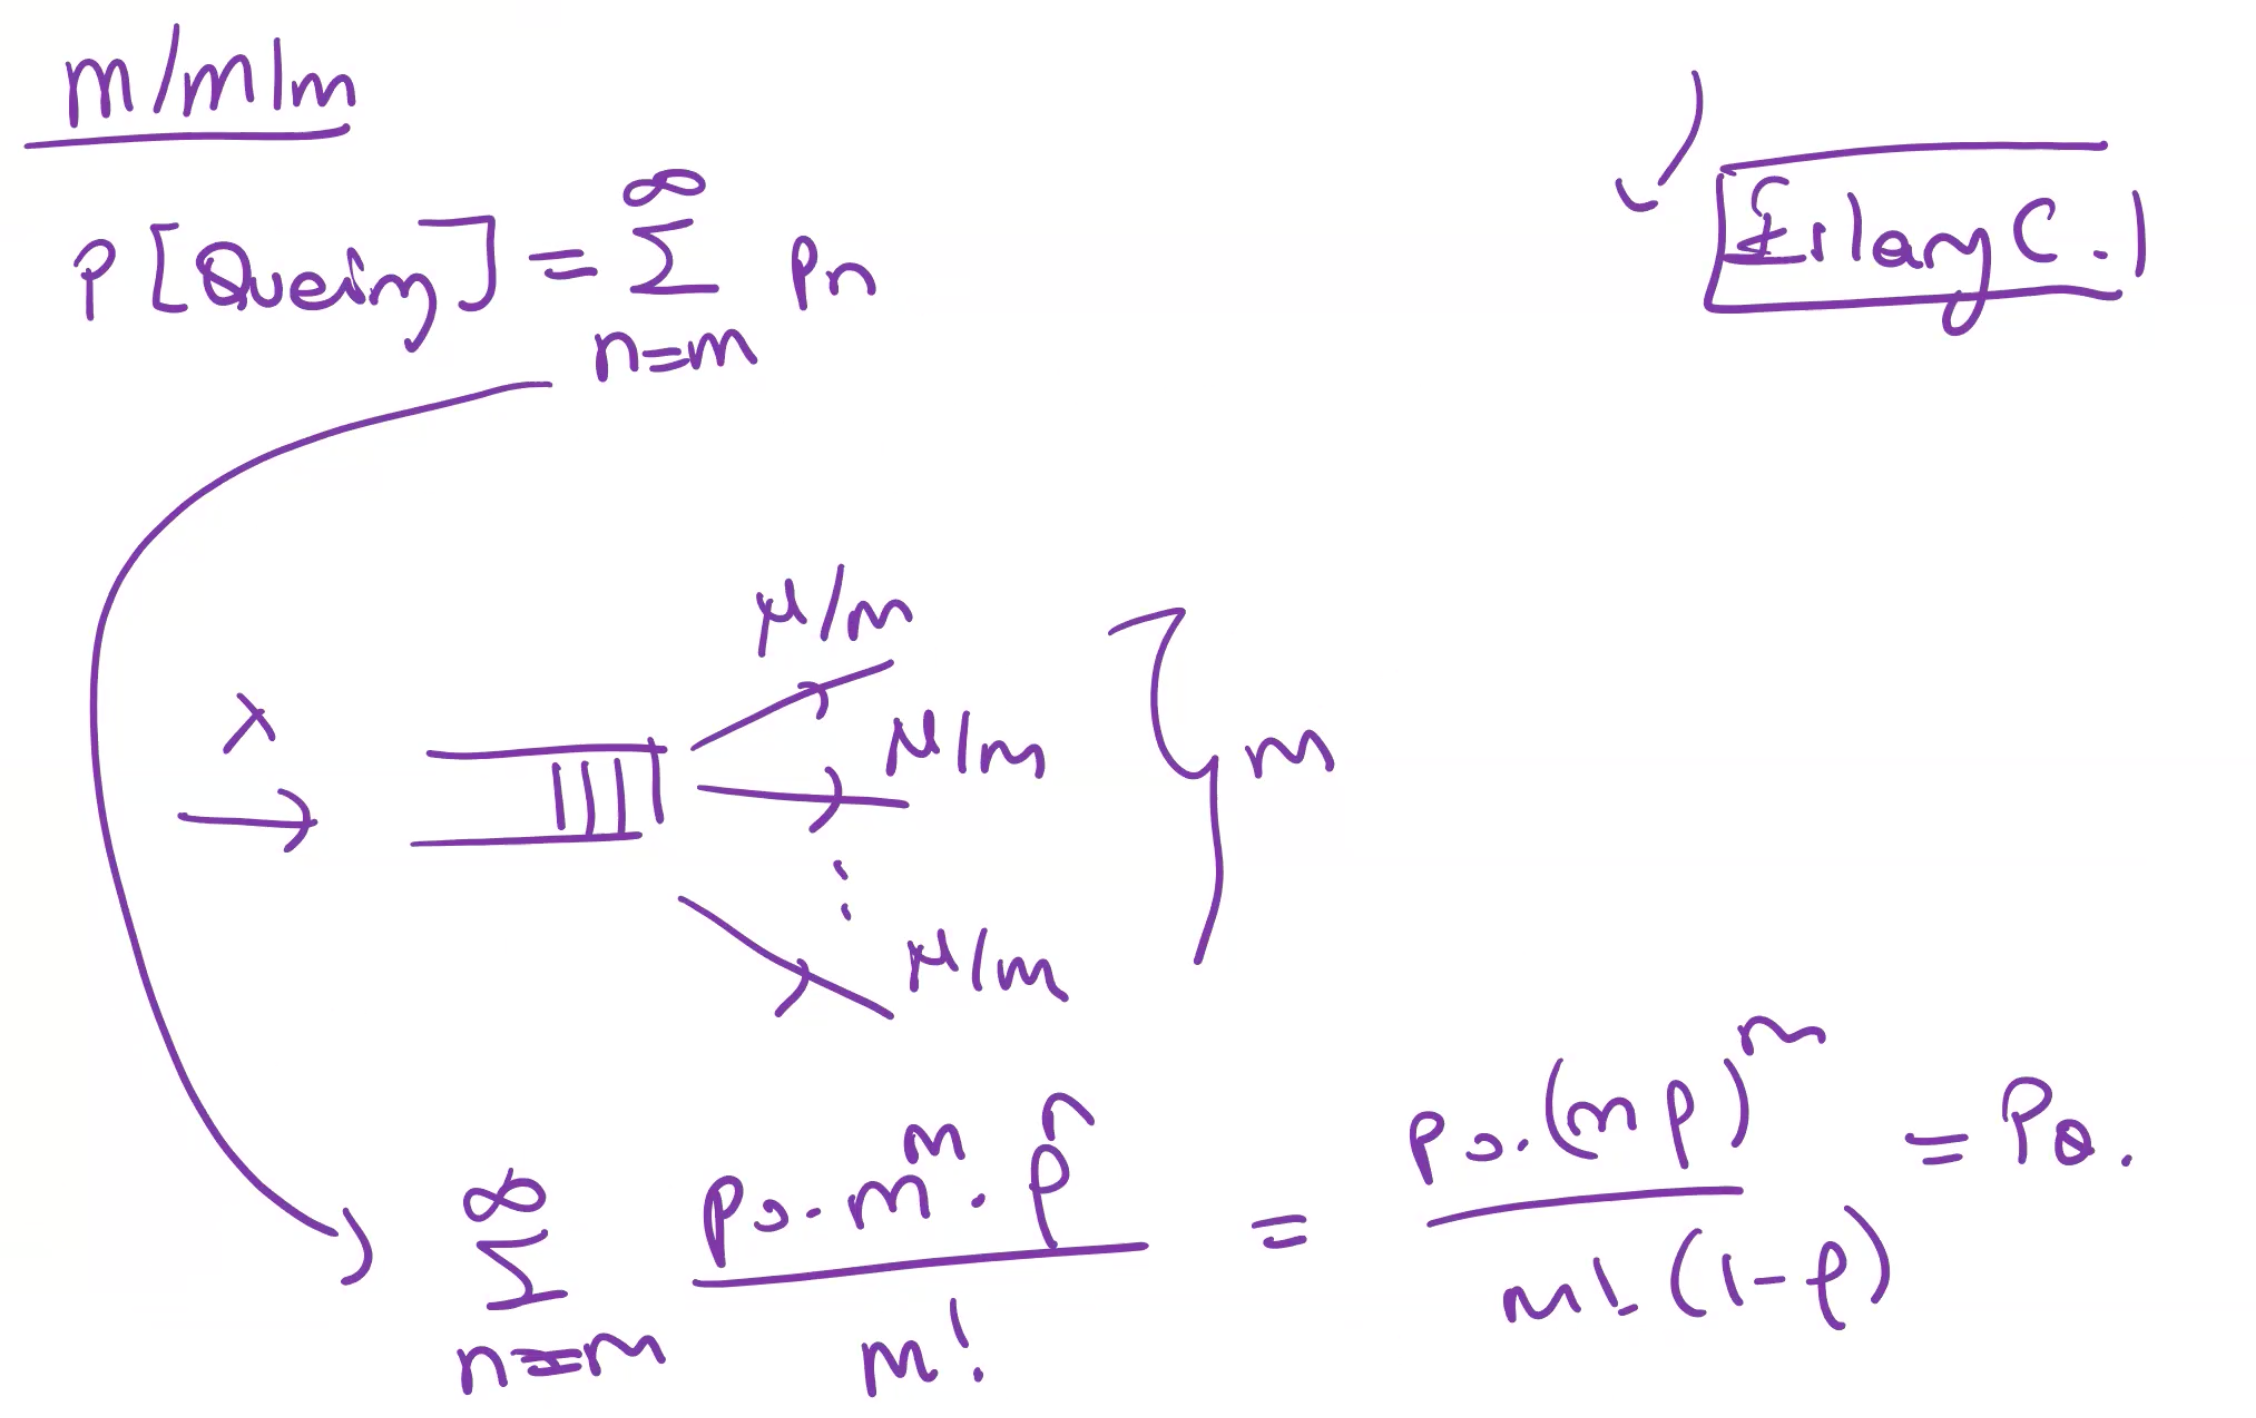 m/m/m
P[Queuing] = ∑_{n=m}^{∞} p_n
Erlang C.
λ
μ/m
μ/m
m
μ/m
∑_{n=m}^{∞} \frac{p_0 . m^m . ρ^n}{m!} = \frac{p_0 . (mρ)^m}{m! (1-ρ)} = P_Q.